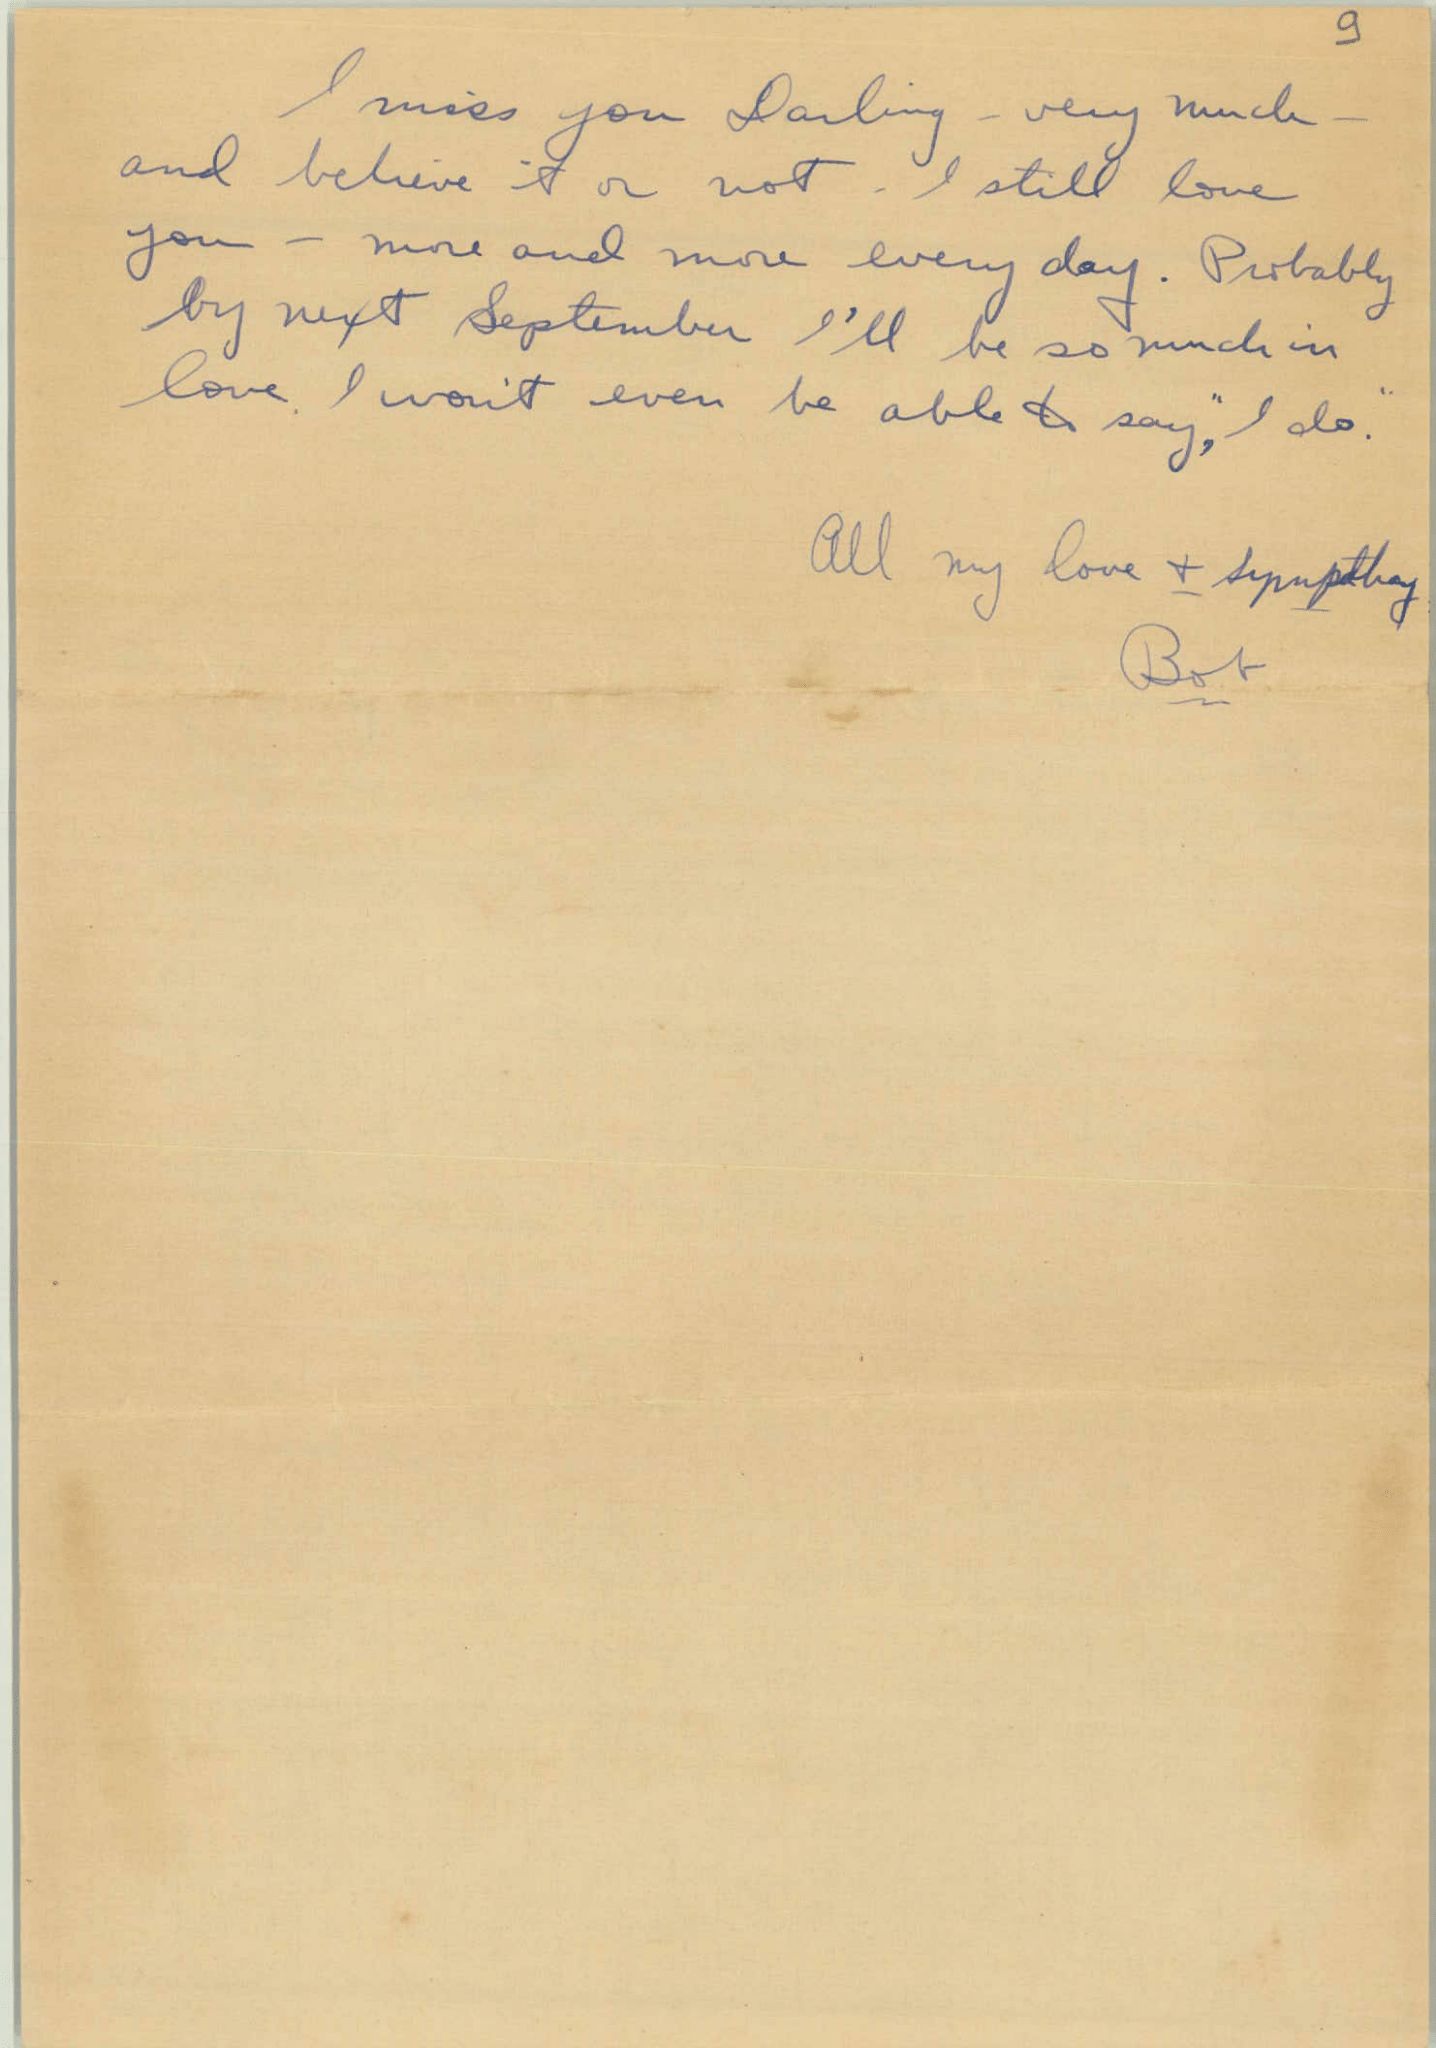 9
I miss you Darling - very much -
and believe it or not - I still love
you - more and more every day. Probably
by next September I'll be so much in
love. I won't even be able to say, "I do."
All my love & sympthay
Bob